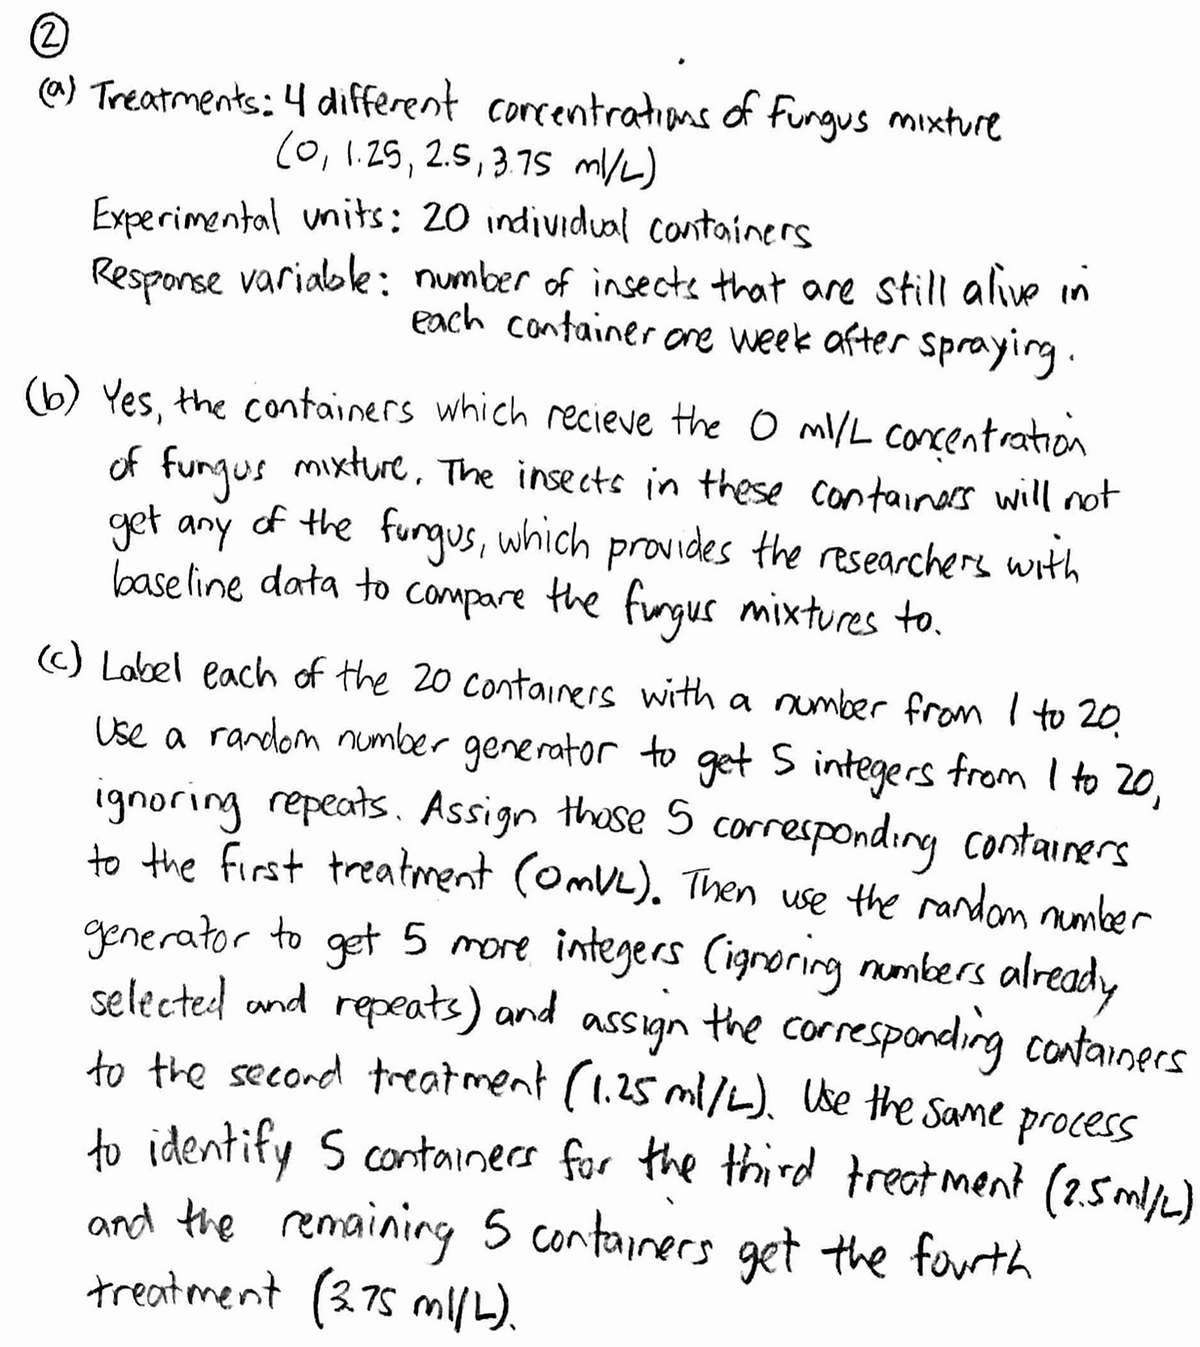 ②
(a) Treatments: 4 different concentrations of fungus mixture
(0, 1.25, 2.5, 3.75 ml/L)
Experimental units: 20 individual containers
Response variable: number of insects that are still alive in
each container one week after spraying.
(b) Yes, the containers which recieve the 0 ml/L concentration
of fungus mixture. The insects in these containers will not
get any of the fungus, which provides the researchers with
baseline data to compare the fungus mixtures to.
(c) Label each of the 20 containers with a number from 1 to 20.
Use a random number generator to get 5 integers from 1 to 20,
ignoring repeats. Assign those 5 corresponding containers
to the first treatment (0 ml/L). Then use the random number
generator to get 5 more integers (ignoring numbers already
selected and repeats) and assign the corresponding containers
to the second treatment (1.25 ml/L). Use the same process
to identify 5 containers for the third treatment (2.5 ml/L)
and the remaining 5 containers get the fourth
treatment (3.75 ml/L).